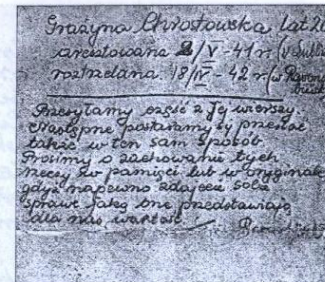 Grażyna Chrostowska lat 20
aresztowana 8/V - 41 r. (w Lubli
rozstrzelana 18/IV - 42 r. (w Ravens
brück
Przesyłamy część z Jej wierszy.
Następne postaramy się przesłać
także w ten sam sposób.
Prosimy o zachowanie tych
rzeczy w pamięci lub w oryginale
gdyż napewno zdajecie sobie
sprawę jaką one przedstawiają
dla nas wartość.